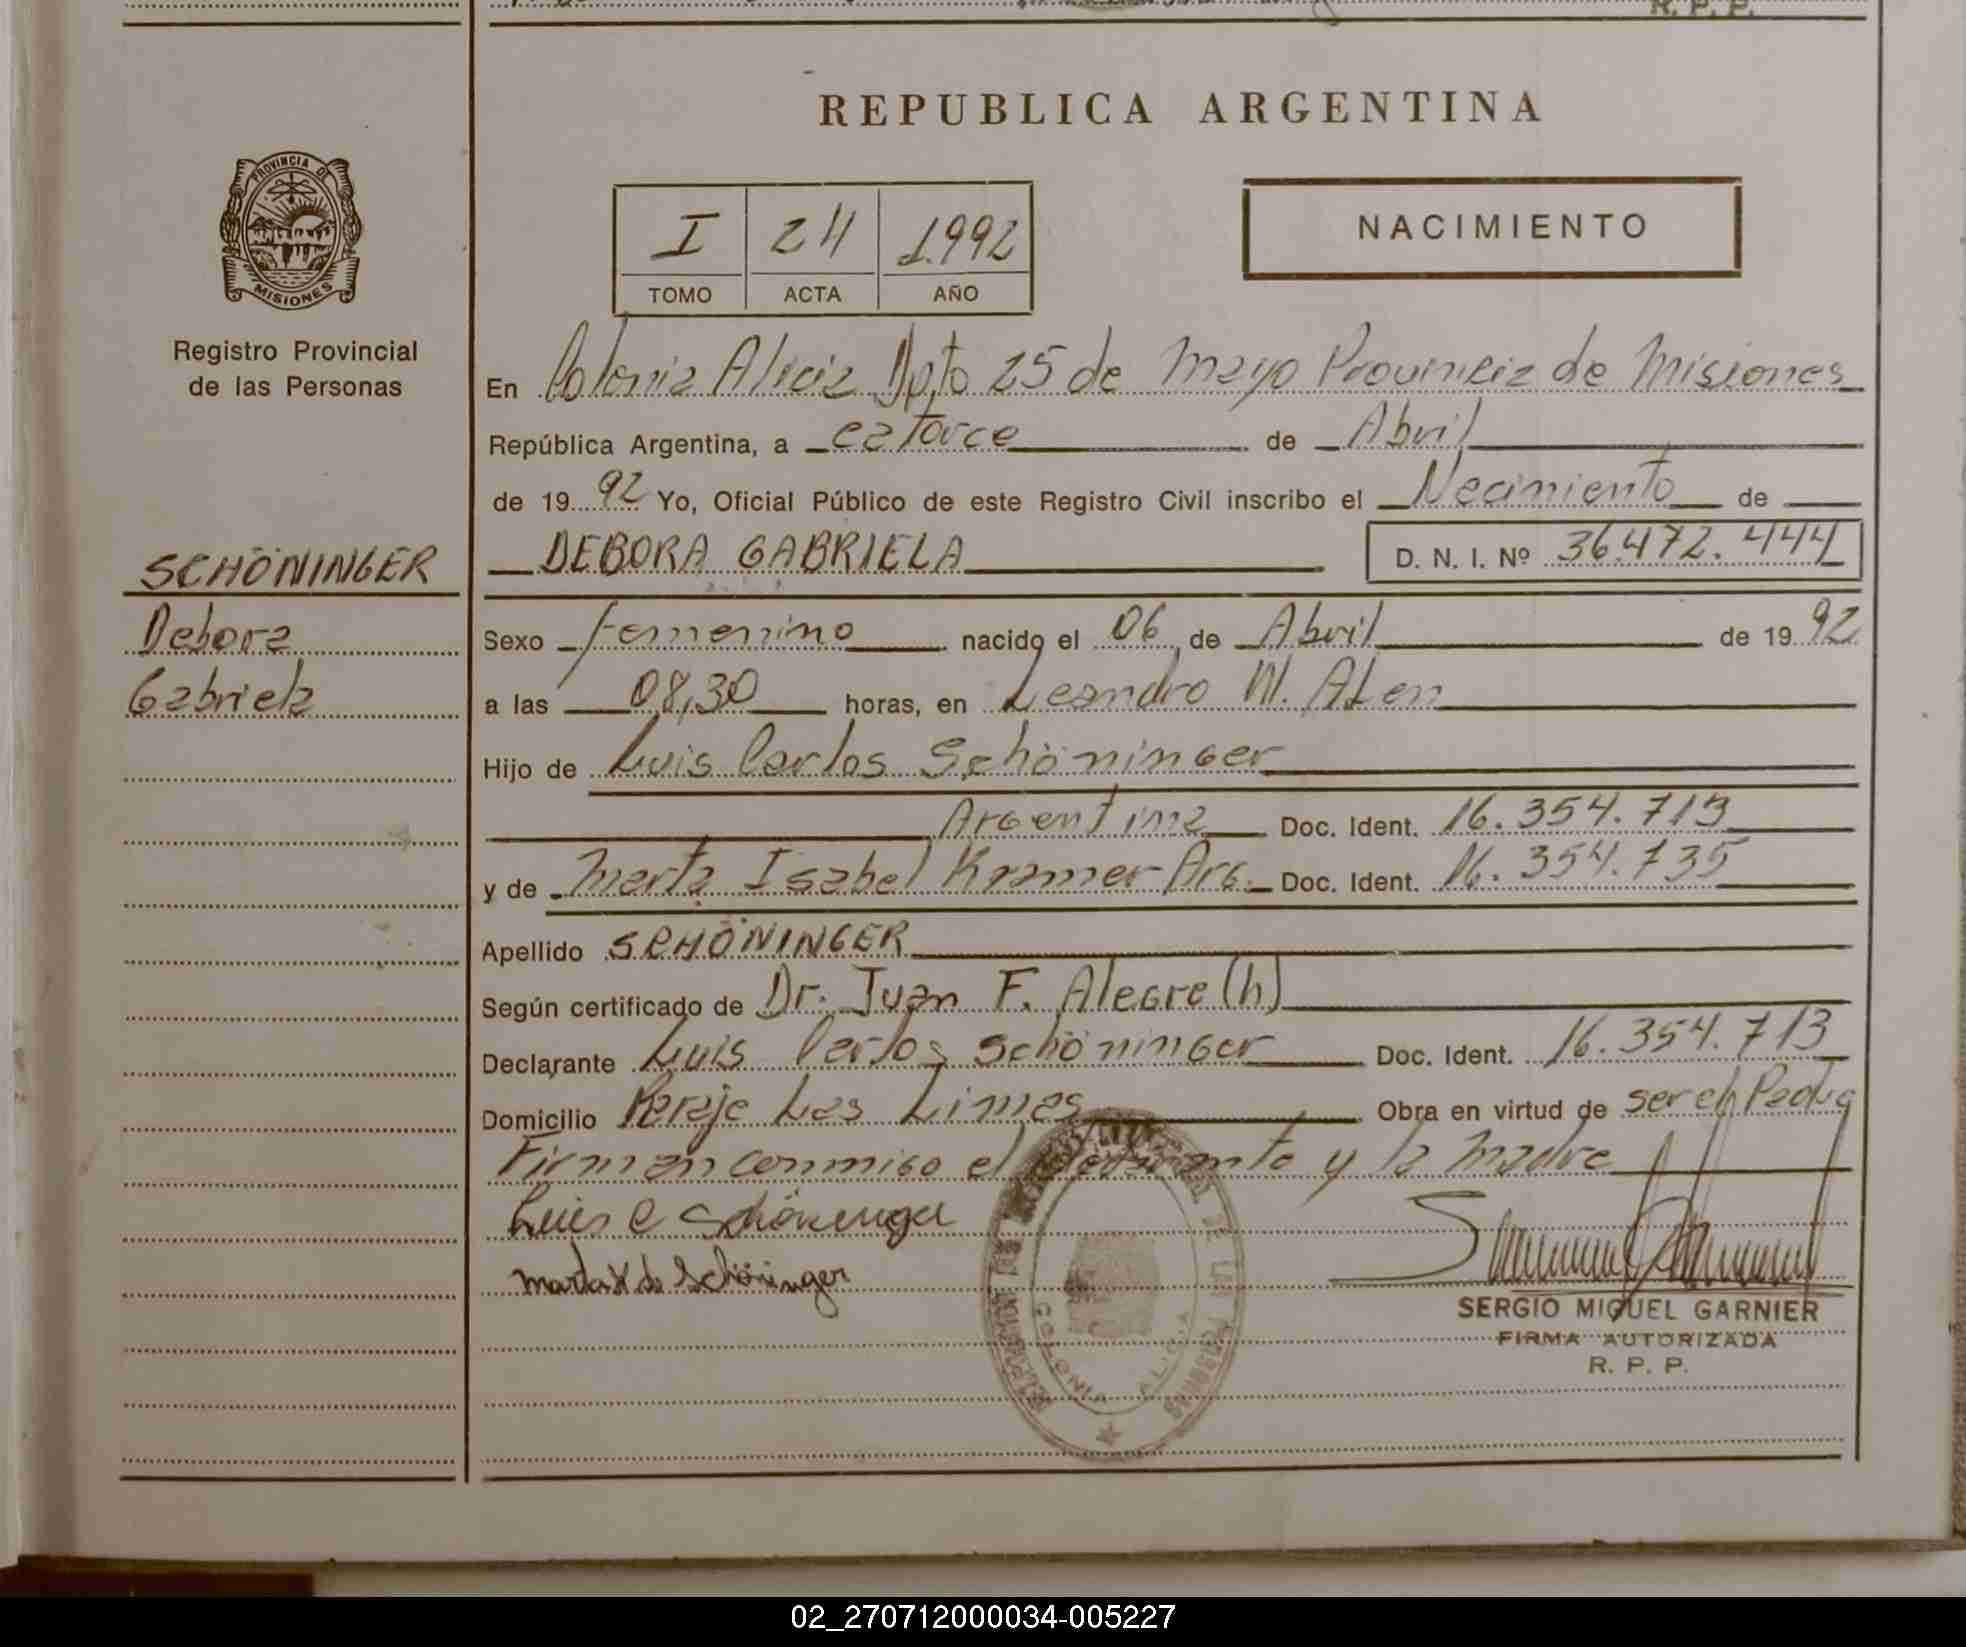 R. P. P.
REPUBLICA ARGENTINA
PROVINCIA DE
MISIONES
Registro Provincial
de las Personas
I 24 1.992
TOMO ACTA AÑO
NACIMIENTO
En Colonia Alicia Dpto 25 de Mayo Provincia de Misiones
República Argentina, a catorce de Abril
de 19 92 Yo, Oficial Público de este Registro Civil inscribo el Nacimiento de
SCHÖNINGER
DEBORA GABRIELA D. N. I. Nº 36.472.444
Debora
Gabriela
Sexo femenino nacido el 06 de Abril de 19 92
a las 08,30 horas, en Leandro N. ALen
Hijo de Luis Carlos Schöninger
Argentina Doc. Ident. 16.354.713
y de Marta Isabel Kramer Arg. Doc. Ident. 16.354.735
Apellido SCHÖNINGER
Según certificado de Dr. Juan F. Alegre (h)
Declarante Luis Carlos Schöninger Doc. Ident. 16.354.713
Domicilio Paraje Las Limas Obra en virtud de ser el Padre
Firman conmigo el declarante y la Madre
Luis C Schöninger
Marta K de Schöninger
COLONIA ALICIA
SERGIO MIGUEL GARNIER
FIRMA AUTORIZADA
R. P. P.
02_270712000034-005227